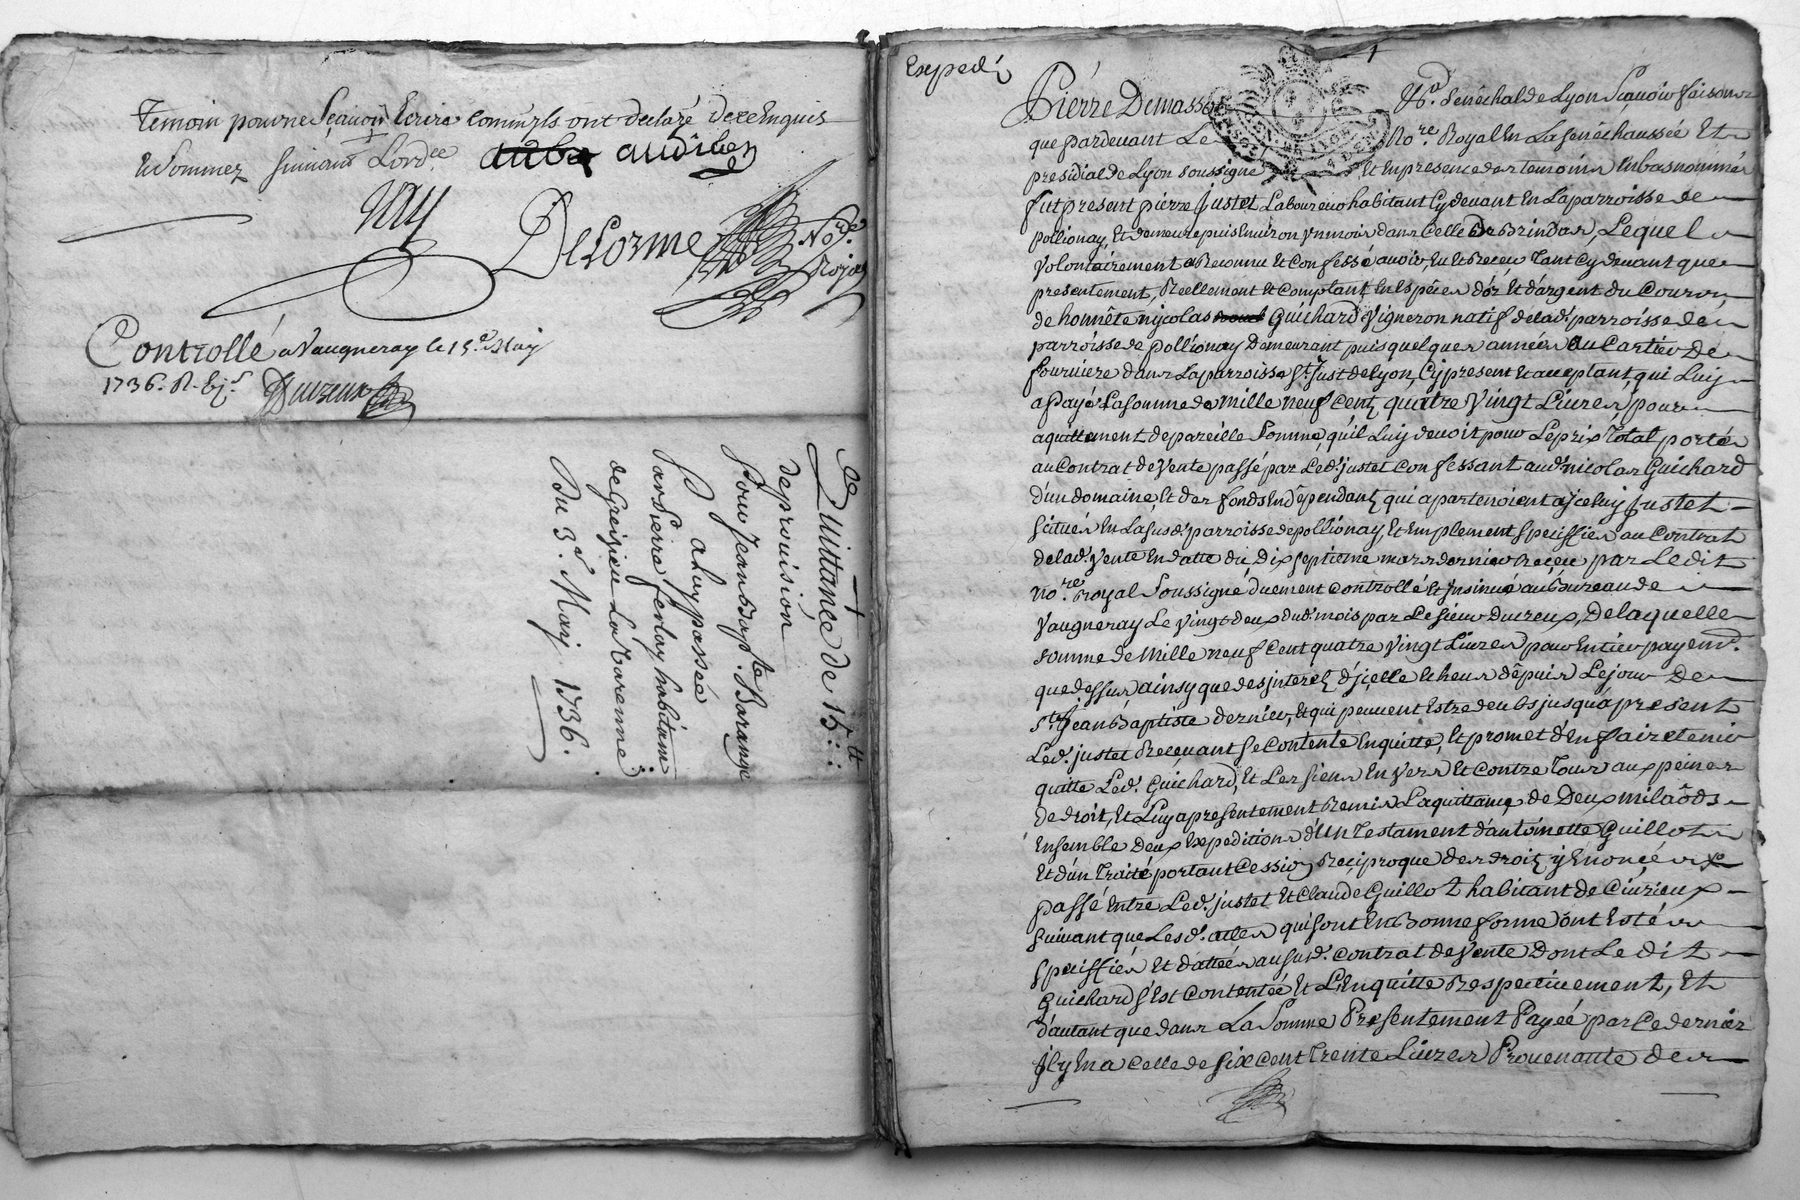 temoin pour ne Sçauoir Ecrire comm'ils ont declaré de ce Enquis
et Sommez suiuant Lord.ce audiben
Ray
Delorme No.re Royal
Controllé a Vaugneray le 15.e May
1736. R. Dureux
Quittance de 15.tt
de prouision
Pour Jean Bap.te Barange
a luy passée
Par Pierre ferlay habitant
de Greisieu La Varenne
Du 3.e May 1736.
Expedié
Pierre Demasso Senéchal de Lyon Scauoir faisons
que pardevant Le No.re Royal En La senéchaussée Et
presidial de Lyon soussigné Et En presence des temoins Enbas nommés
fut present pierre Justet Laboureur habitant Cy deuant En La parroisse de
pollionay, Et demeure puis Enuiron Un mois dans Celle De Brindas, Lequel
Volontairement a Reconnu Et Confessé auoir, Eu Et Receu tant Cy deuant que
presentement, Reellement Et Comptant En Espéces d'or Et d'argent du Cours
de honnête nicolas Guichard Vigneron natif de lad. parroisse de
parroisse de pollionay Demeurant puis quelques années au Cartier De
fouruiere dans La parroisse S.t Just de Lyon, Cy present Et acceptant, qui Luy
a Payé La somme de mille neuf Cent quatre Vingt Liures, pour
aquittement de pareille Somme, qu'il Luy deuoit pour Le prix total porté
au Contrat de Vente passé par Led. justet Confessant aud. nicolas Guichard
d'un domaine, Et des fonds En dépendants qui apartenoient a jceluy Justet
scitués En La susd. parroisse de pollionay, Et Emplement Specifies au Contrat
de lad. Vente En datte du Dix septieme mars dernier Reçeu par Le dit
no.re Royal Soussigné duement Controllé Et Jnsinué au Bureau de
Vaugneray Le Vingt deux dud. mois par Le sieur Dureux, De laquelle
somme de Mille neuf Cent quatre Vingt Liures pour Entier payem.t
que dessus ainsy que des jnterets d'jcelle Echeus dépuis Le jour De
S.t Jean Baptiste dernier, Et qui peuuent Estre deubs jusqu'a present
Led. justet Receuant se Contente En quitte, Et promet d'En faire tenir
quitte Led. Guichard, Et Les siens En Vers Et Contre Tous aux peines
de droit, Et Luy a presentement Remis La quittance de Deux milaods
Ensemble Deux Expeditions d'Un Testament d'antoinette Guillot
Et d'un traité portant Cession Reciproque des droits y Enoncés
passé Entre Led. justet Et Claude Guillot habitant de Ciurieux
suiuant que Lesd. actes qui sont En Bonne forme ont Esté
Speciffiés Et dattées au susd. Contrat de Vente Dont Le dit
Guichard s'Est Contenté Et L'En quitte Respectiuement, Et
d'autant que dans La Somme Presentement Payée par Ce dernier
Jl y En a Celle de six Cent Trente Liures Prouenante des